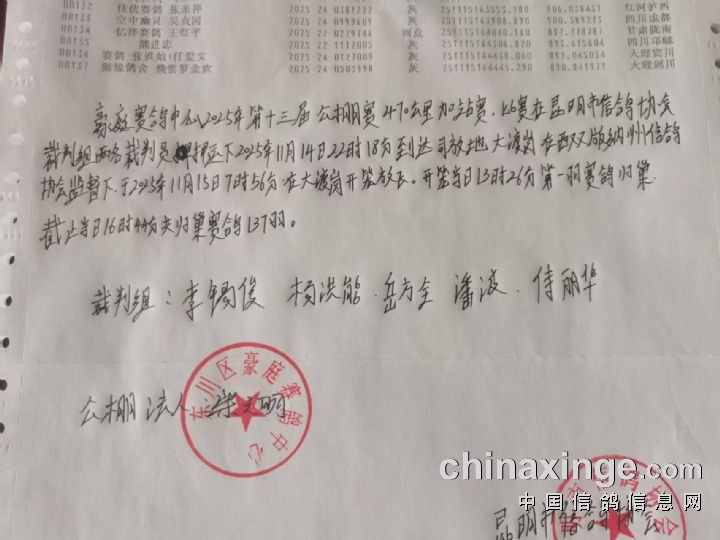 00132 佳优赛鸽 张亲萍 2025 24 0381247 灰 251115163353.180 906.038451 红河泸西
00133 空中幽灵 吴贞国 2025 24 0999609 灰 四川成都
00134 亿泽赛鸽 王红平 2025 24 雨点 甘肃陇南
00135 熊进忠 2025 22 1112005 灰 四川邛崃
00136 赛鸽 张 任爱文 2025 24 灰 251115164445.290 891.045034 大理宾川
00137 随缘鸽舍 殷雲梦金欢 2025 24 0503998 灰 251115164458.390 890.841641 大理剑川
豪庭赛鸽中心2025年第十三届公棚赛470公里加站赛,比赛在昆明市信鸽协会
裁判组两名裁判员押运下2025年11月14日22时18分到达司放地大渡岗在西双版纳州信鸽
协会监督下.于2025年11月15日7时56分在大渡岗开笼放飞。开笼当日13时26分第一羽赛鸽归巢
截止当日16时44分共归巢赛鸽137羽。
裁判组:李锡俊 杨洪能.岳方全 潘波.侍丽华
公棚法人:
东川区豪庭赛鸽中心
昆明市信鸽协会
chinaxinge.com
中国信鸽信息网